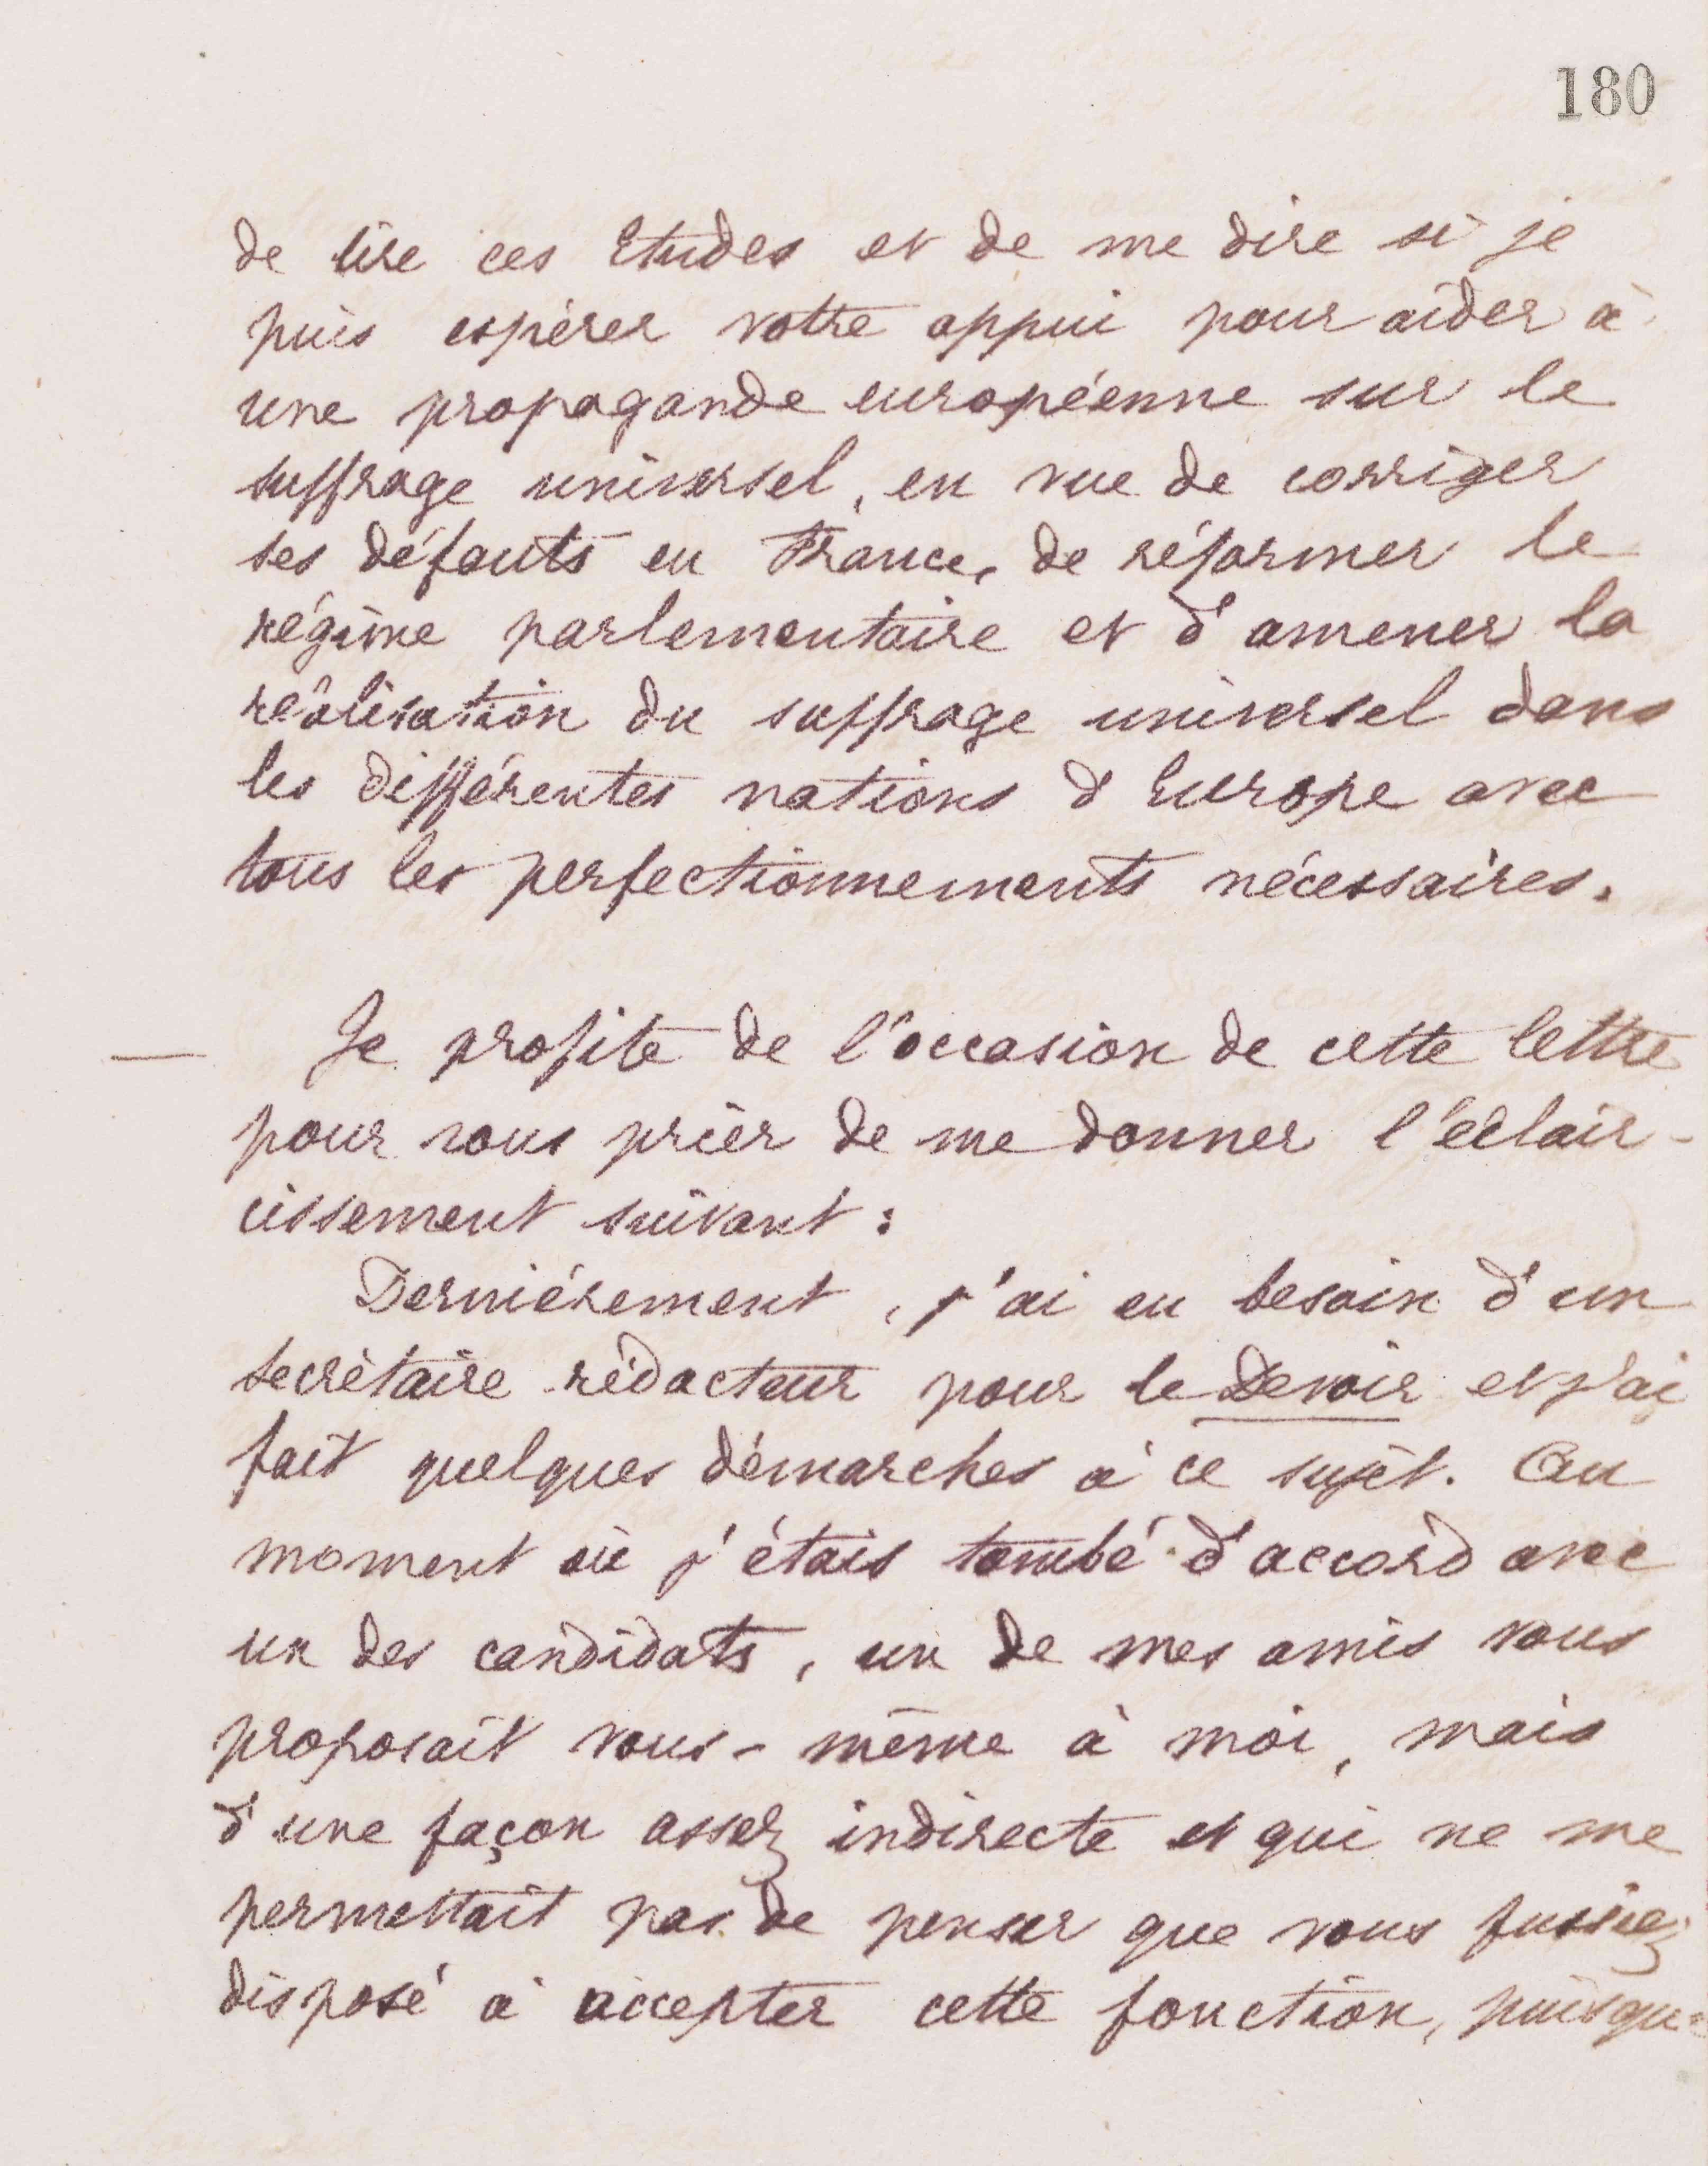 180
de lire ces Etudes et de me dire si je
puis espérer votre appui pour aider à
une propagande européenne sur le
suffrage universel, en vue de corriger
ses défauts en France, de réformer le
régime parlementaire et d'amener la
réalisation du suffrage universel dans
les différentes nations d'Europe avec
tous les perfectionnements nécessaires.
— Je profite de l'occasion de cette lettre
pour vous prier de me donner l'éclair-
cissement suivant :
Dernièrement, j'ai eu besoin d'un
secrétaire rédacteur pour le Devoir et j'ai
fait quelques démarches à ce sujet. Au
moment où j'étais tombé d'accord avec
un des candidats, un de mes amis vous
proposait vous-même à moi, mais
d'une façon assez indirecte et qui ne me
permettait pas de penser que vous fussiez
disposé à accepter cette fonction, puisqu-